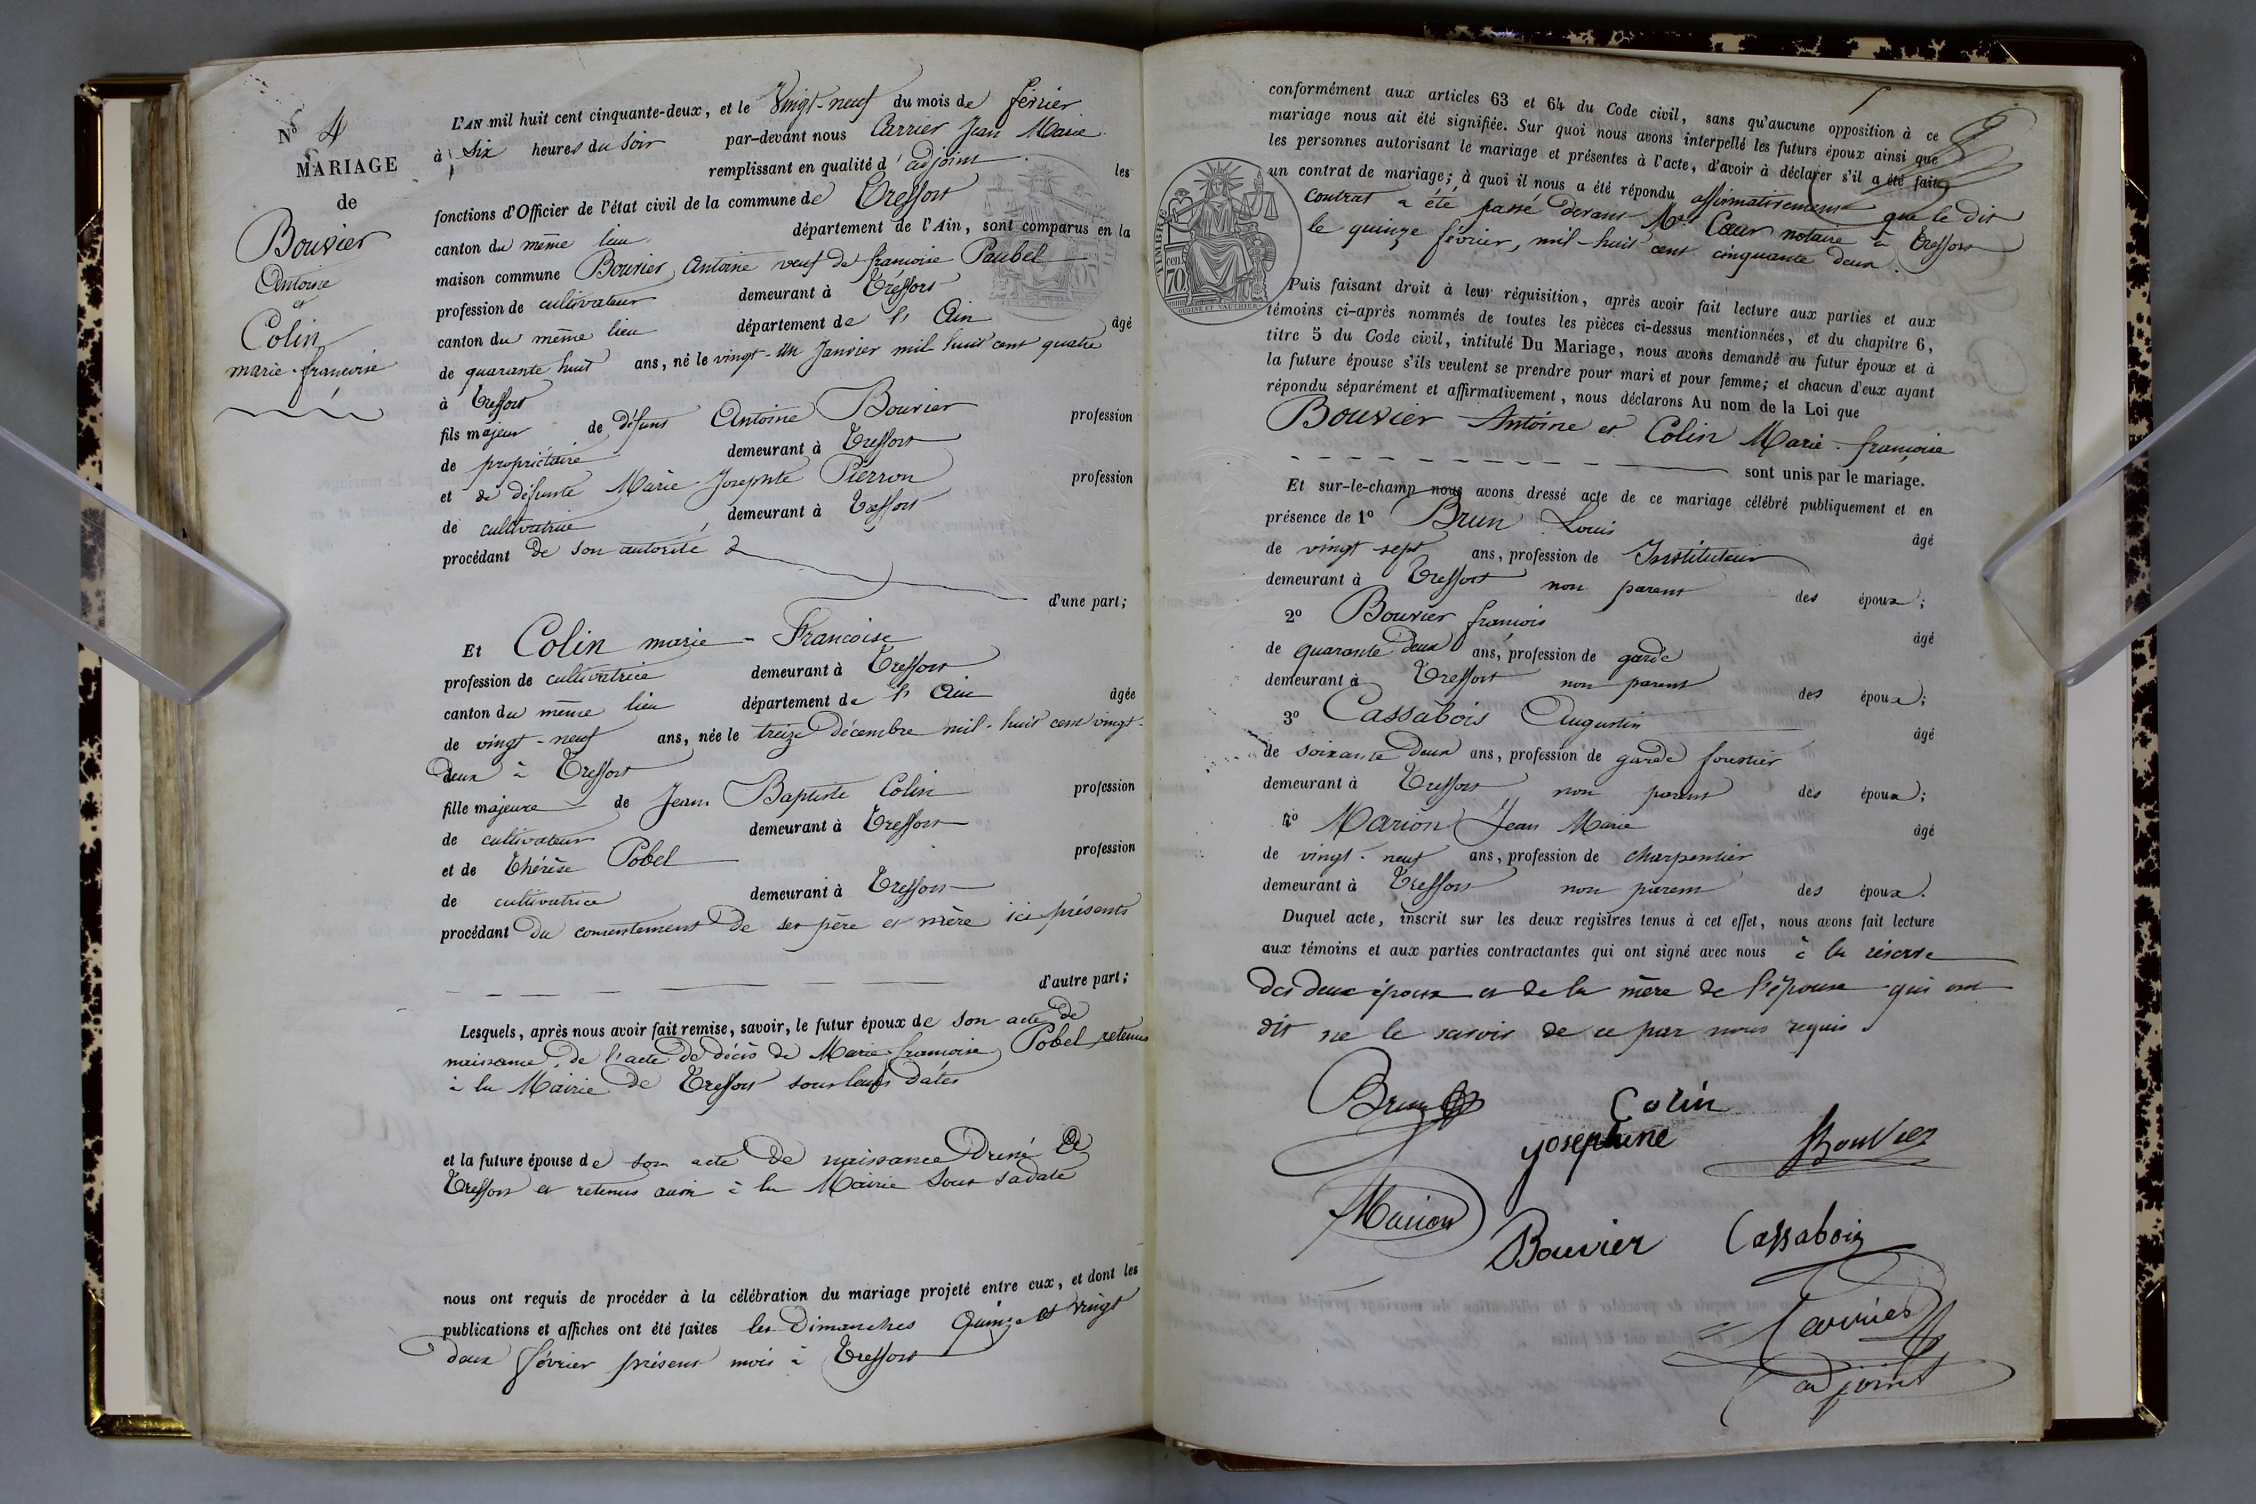 N° 4
MARIAGE
de
Bouvier
Antoine
et
Colin
marie-francoise
L'AN mil huit cent cinquante-deux, et le Vingt-neuf du mois de février
à six heures du soir par-devant nous Carrier Jean Marie
remplissant en qualité d'adjoint les
fonctions d'Officier de l'état civil de la commune de Treffort
canton du même lieu département de l'Ain, sont comparus en la
maison commune Bouvier Antoine veuf de francoise Paubel
profession de cultivateur demeurant à Tréffort
canton du même lieu département de l'Ain âgé
de quarante huit ans, né le vingt-un Janvier mil huit cent quatre
à Treffort
fils majeur de défunt Antoine Bouvier profession
de propriétaire demeurant à Treffort
et de défunte Marie Josephte Pierron profession
de cultivatrice demeurant à Treffort
procédant de son autorité
d'une part;
Et Colin marie-Francoise
profession de cultivatrice demeurant à Treffort
canton du même lieu département de l'Ain âgée
de vingt-neuf ans, née le treize Décembre mil-huit cent vingt-
deux à Treffort
fille majeure de Jean Baptiste Colin profession
de cultivateur demeurant à Treffort
et de Thérèse Pobel profession
de cultivatrice demeurant à Treffort
procédant du consentement de ses père et mère ici présents
d'autre part;
Lesquels, après nous avoir fait remise, savoir, le futur époux de son acte de
naissance, de l'acte de décès de Marie francoise Pobel retenus
à la Mairie de Treffort sous leurs dates
et la future épouse de son acte de naissance
Treffort et retenus aussi à la Mairie sous sa date
nous ont requis de procéder à la célébration du mariage projeté entre eux, et dont les
publications et affiches ont été faites les Dimanches Quinze et vingt
deux février présent mois à Treffort
conformément aux articles 63 et 64 du Code civil, sans qu'aucune opposition à ce
mariage nous ait été signifiée. Sur quoi nous avons interpellé les futurs époux ainsi que
les personnes autorisant le mariage et présentes à l'acte, d'avoir à déclarer s'il a été fait
un contrat de mariage; à quoi il nous a été répondu affirmativement que le dit
contrat a été passé devant Me Cœur notaire à Treffort
le quinze février, mil-huit cent cinquante deux.
TIMBRE
cen
70
OUDINÉ ET VAUTHIER
Puis faisant droit à leur réquisition, après avoir fait lecture aux parties et aux
témoins ci-après nommés de toutes les pièces ci-dessus mentionnées, et du chapitre 6,
titre 5 du Code civil, intitulé Du Mariage, nous avons demandé au futur époux et à
la future épouse s'ils veulent se prendre pour mari et pour femme; et chacun d'eux ayant
répondu séparément et affirmativement, nous déclarons Au nom de la Loi que
Bouvier Antoine et Colin Marie-françoise
sont unis par le mariage.
Et sur-le-champ nous avons dressé acte de ce mariage célébré publiquement et en
présence de 1° Brun Louis âgé
de vingt-sept ans, profession de Instituteur
demeurant à Treffort non parent des époux;
2° Bouvier francois âgé
de quarante deux ans, profession de garde
demeurant à Treffort non parent des époux;
3° Cassabois Augustin âgé
de soixante deux ans, profession de garde forestier
demeurant à Treffort non parent des époux;
4° Marion Jean Marie âgé
de vingt-neuf ans, profession de charpentier
demeurant à Treffort non parent des époux.
Duquel acte, inscrit sur les deux registres tenus à cet effet, nous avons fait lecture
aux témoins et aux parties contractantes qui ont signé avec nous à la réserve
des deux époux et de la mère de l'épouse qui ont
dit ne le savoir de ce par nous requis.
Brun Colin
Josephine Bouvier
Marion
Bouvier Cassabois
Carrier
adjoint